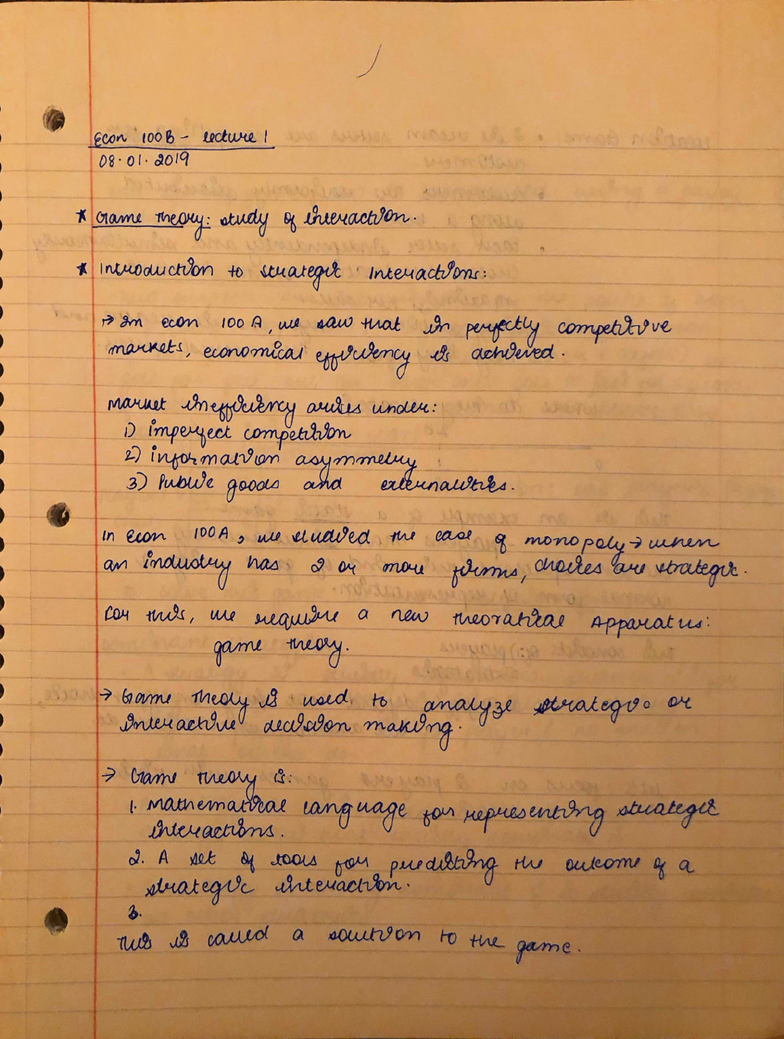 Econ 100B - lecture 1
08.01.2019
* Game Theory: study of interaction.
* Introduction to strategic Interactions:
→ In econ 100A, we saw that in perfectly competitive
markets, economical efficiency is achieved.
Market inefficiency arises under:
1) imperfect competition
2) information asymmetry
3) Public goods and externalities.
In Econ 100A, we studied the case of monopoly → when
an industry has 2 or more firms, choices are strategic.
For this, we require a new theoratical Apparatus:
game theory.
→ Game theory is used to analyze strategic or
interactive decision making.
→ Game theory is:
1. Mathematical language for representing strategic
interactions.
2. A set of tools for predicting the outcome of a
strategic interaction.
3.
This is called a solution to the game.